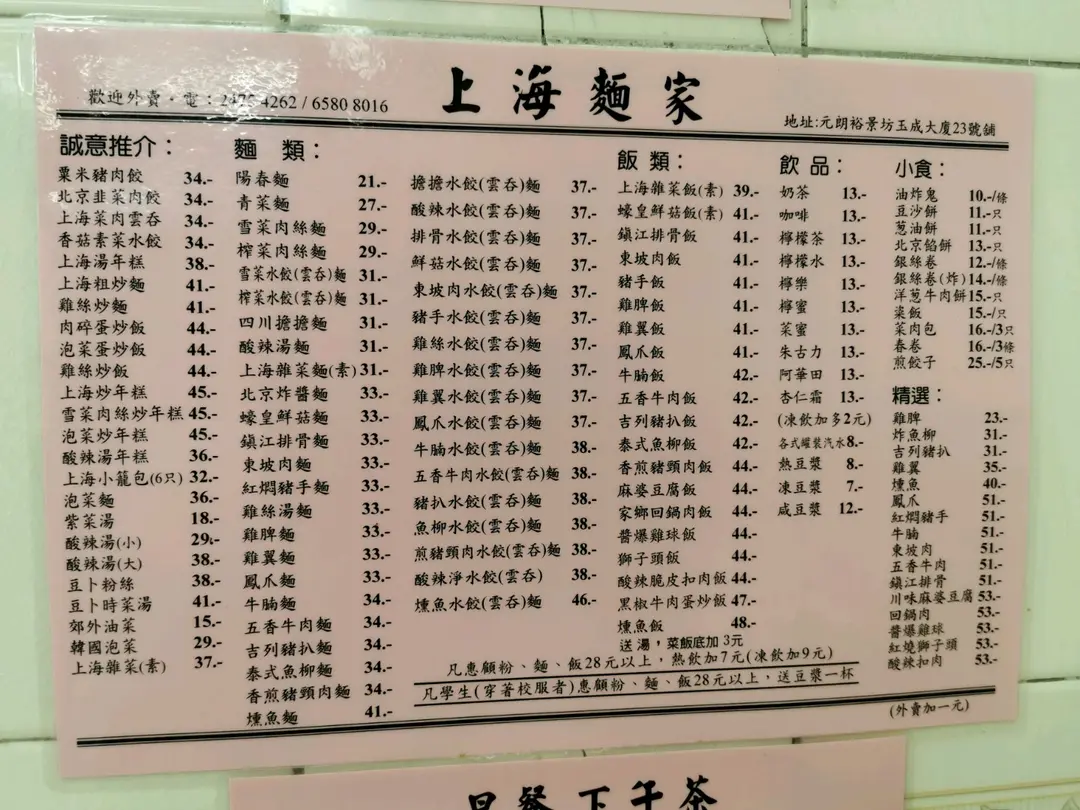 上海麵家
歡迎外賣·電：2475 4262 / 6580 8016
地址:元朗裕景坊玉成大廈23號舖
誠意推介：
粟米豬肉餃 34.-
北京韭菜肉餃 34.-
上海菜肉雲呑 34.-
香菇素菜水餃 34.-
上海湯年糕 38.-
上海粗炒麵 41.-
雞絲炒麵 41.-
肉碎蛋炒飯 44.-
泡菜蛋炒飯 44.-
雞絲炒飯 44.-
上海炒年糕 45.-
雪菜肉絲炒年糕 45.-
泡菜炒年糕 45.-
酸辣湯年糕 36.-
上海小籠包(6只) 32.-
泡菜麵 36.-
紫菜湯 18.-
酸辣湯(小) 29.-
酸辣湯(大) 38.-
豆卜粉絲 38.-
豆卜時菜湯 41.-
郊外油菜 15.-
韓國泡菜 29.-
上海雜菜(素) 37.-
麵 類：
陽春麵 21.-
青菜麵 27.-
雪菜肉絲麵 29.-
榨菜肉絲麵 29.-
雪菜水餃(雲呑)麵 31.-
榨菜水餃(雲呑)麵 31.-
四川擔擔麵 31.-
酸辣湯麵 31.-
上海雜菜麵(素) 31.-
北京炸醬麵 33.-
蠔皇鮮菇麵 33.-
鎮江排骨麵 33.-
東坡肉麵 33.-
紅燜豬手麵 33.-
雞絲湯麵 33.-
雞脾麵 33.-
雞翼麵 33.-
鳳爪麵 33.-
牛腩麵 34.-
五香牛肉麵 34.-
吉列豬扒麵 34.-
泰式魚柳麵 34.-
香煎豬頸肉麵 34.-
燻魚麵 41.-
擔擔水餃(雲呑)麵 37.-
酸辣水餃(雲呑)麵 37.-
排骨水餃(雲呑)麵 37.-
鮮菇水餃(雲呑)麵 37.-
東坡肉水餃(雲呑)麵 37.-
豬手水餃(雲呑)麵 37.-
雞絲水餃(雲呑)麵 37.-
雞脾水餃(雲呑)麵 37.-
雞翼水餃(雲呑)麵 37.-
鳳爪水餃(雲呑)麵 37.-
牛腩水餃(雲呑)麵 38.-
五香牛肉水餃(雲呑)麵 38.-
豬扒水餃(雲呑)麵 38.-
魚柳水餃(雲呑)麵 38.-
煎豬頸肉水餃(雲呑)麵 38.-
酸辣淨水餃(雲呑) 38.-
燻魚水餃(雲呑)麵 46.-
飯 類：
上海雜菜飯(素) 39.-
蠔皇鮮菇飯(素) 41.-
鎮江排骨飯 41.-
東坡肉飯 41.-
豬手飯 41.-
雞脾飯 41.-
雞翼飯 41.-
鳳爪飯 41.-
牛腩飯 42.-
五香牛肉飯 42.-
吉列豬扒飯 42.-
泰式魚柳飯 42.-
香煎豬頸肉飯 44.-
麻婆豆腐飯 44.-
家鄉回鍋肉飯 44.-
醬爆雞球飯 44.-
獅子頭飯 44.-
酸辣脆皮扣肉飯 44.-
黑椒牛肉蛋炒飯 47.-
燻魚飯 48.-
送湯，菜飯底加 3元
飲 品：
奶茶 13.-
咖啡 13.-
檸檬茶 13.-
檸檬水 13.-
檸樂 13.-
檸蜜 13.-
菜蜜 13.-
朱古力 13.-
阿華田 13.-
杏仁霜 13.-
(凍飲加多2元)
各式罐裝汽水 8.-
熱豆漿 8.-
凍豆漿 7.-
咸豆漿 12.-
小食：
油炸鬼 10.-/條
豆沙餅 11.-只
葱油餅 11.-只
北京餡餅 13.-只
銀絲卷 12.-/條
銀絲卷(炸) 14.-/條
洋葱牛肉餅 15.-只
粢飯 15.-/只
菜肉包 16.-/3只
春卷 16.-/3條
煎餃子 25.-/5只
精選：
雞脾 23.-
炸魚柳 31.-
吉列豬扒 31.-
雞翼 35.-
燻魚 40.-
鳳爪 51.-
紅燜豬手 51.-
牛腩 51.-
東坡肉 51.-
五香牛肉 51.-
鎮江排骨 51.-
川味麻婆豆腐 53.-
回鍋肉 53.-
醬爆雞球 53.-
紅燒獅子頭 53.-
酸辣扣肉 53.-
(外賣加一元)
凡惠顧粉、麵、飯28元以上，熱飲加7元(凍飲加9元)
凡學生(穿著校服者)惠顧粉、麵、飯28元以上，送豆漿一杯
早餐 下午茶